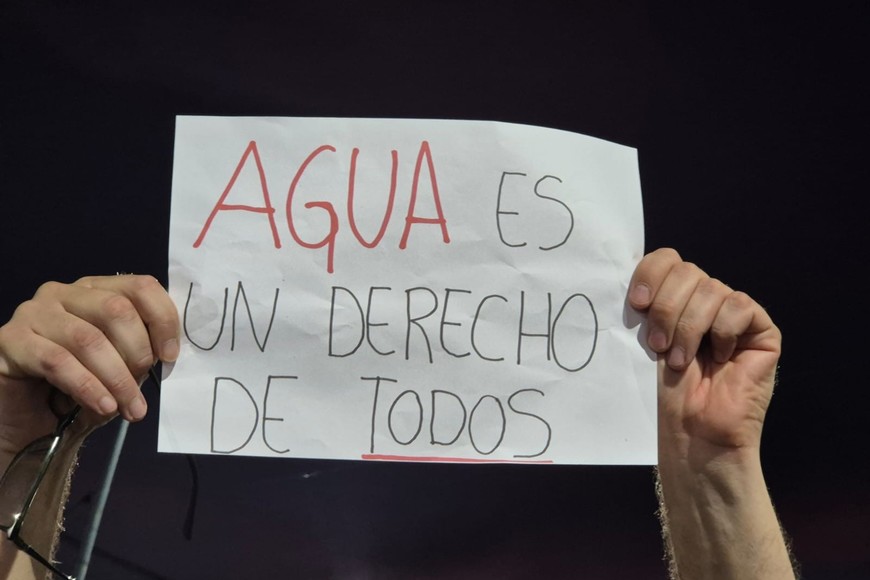 AGUA ES
UN DERECHO
DE TODOS